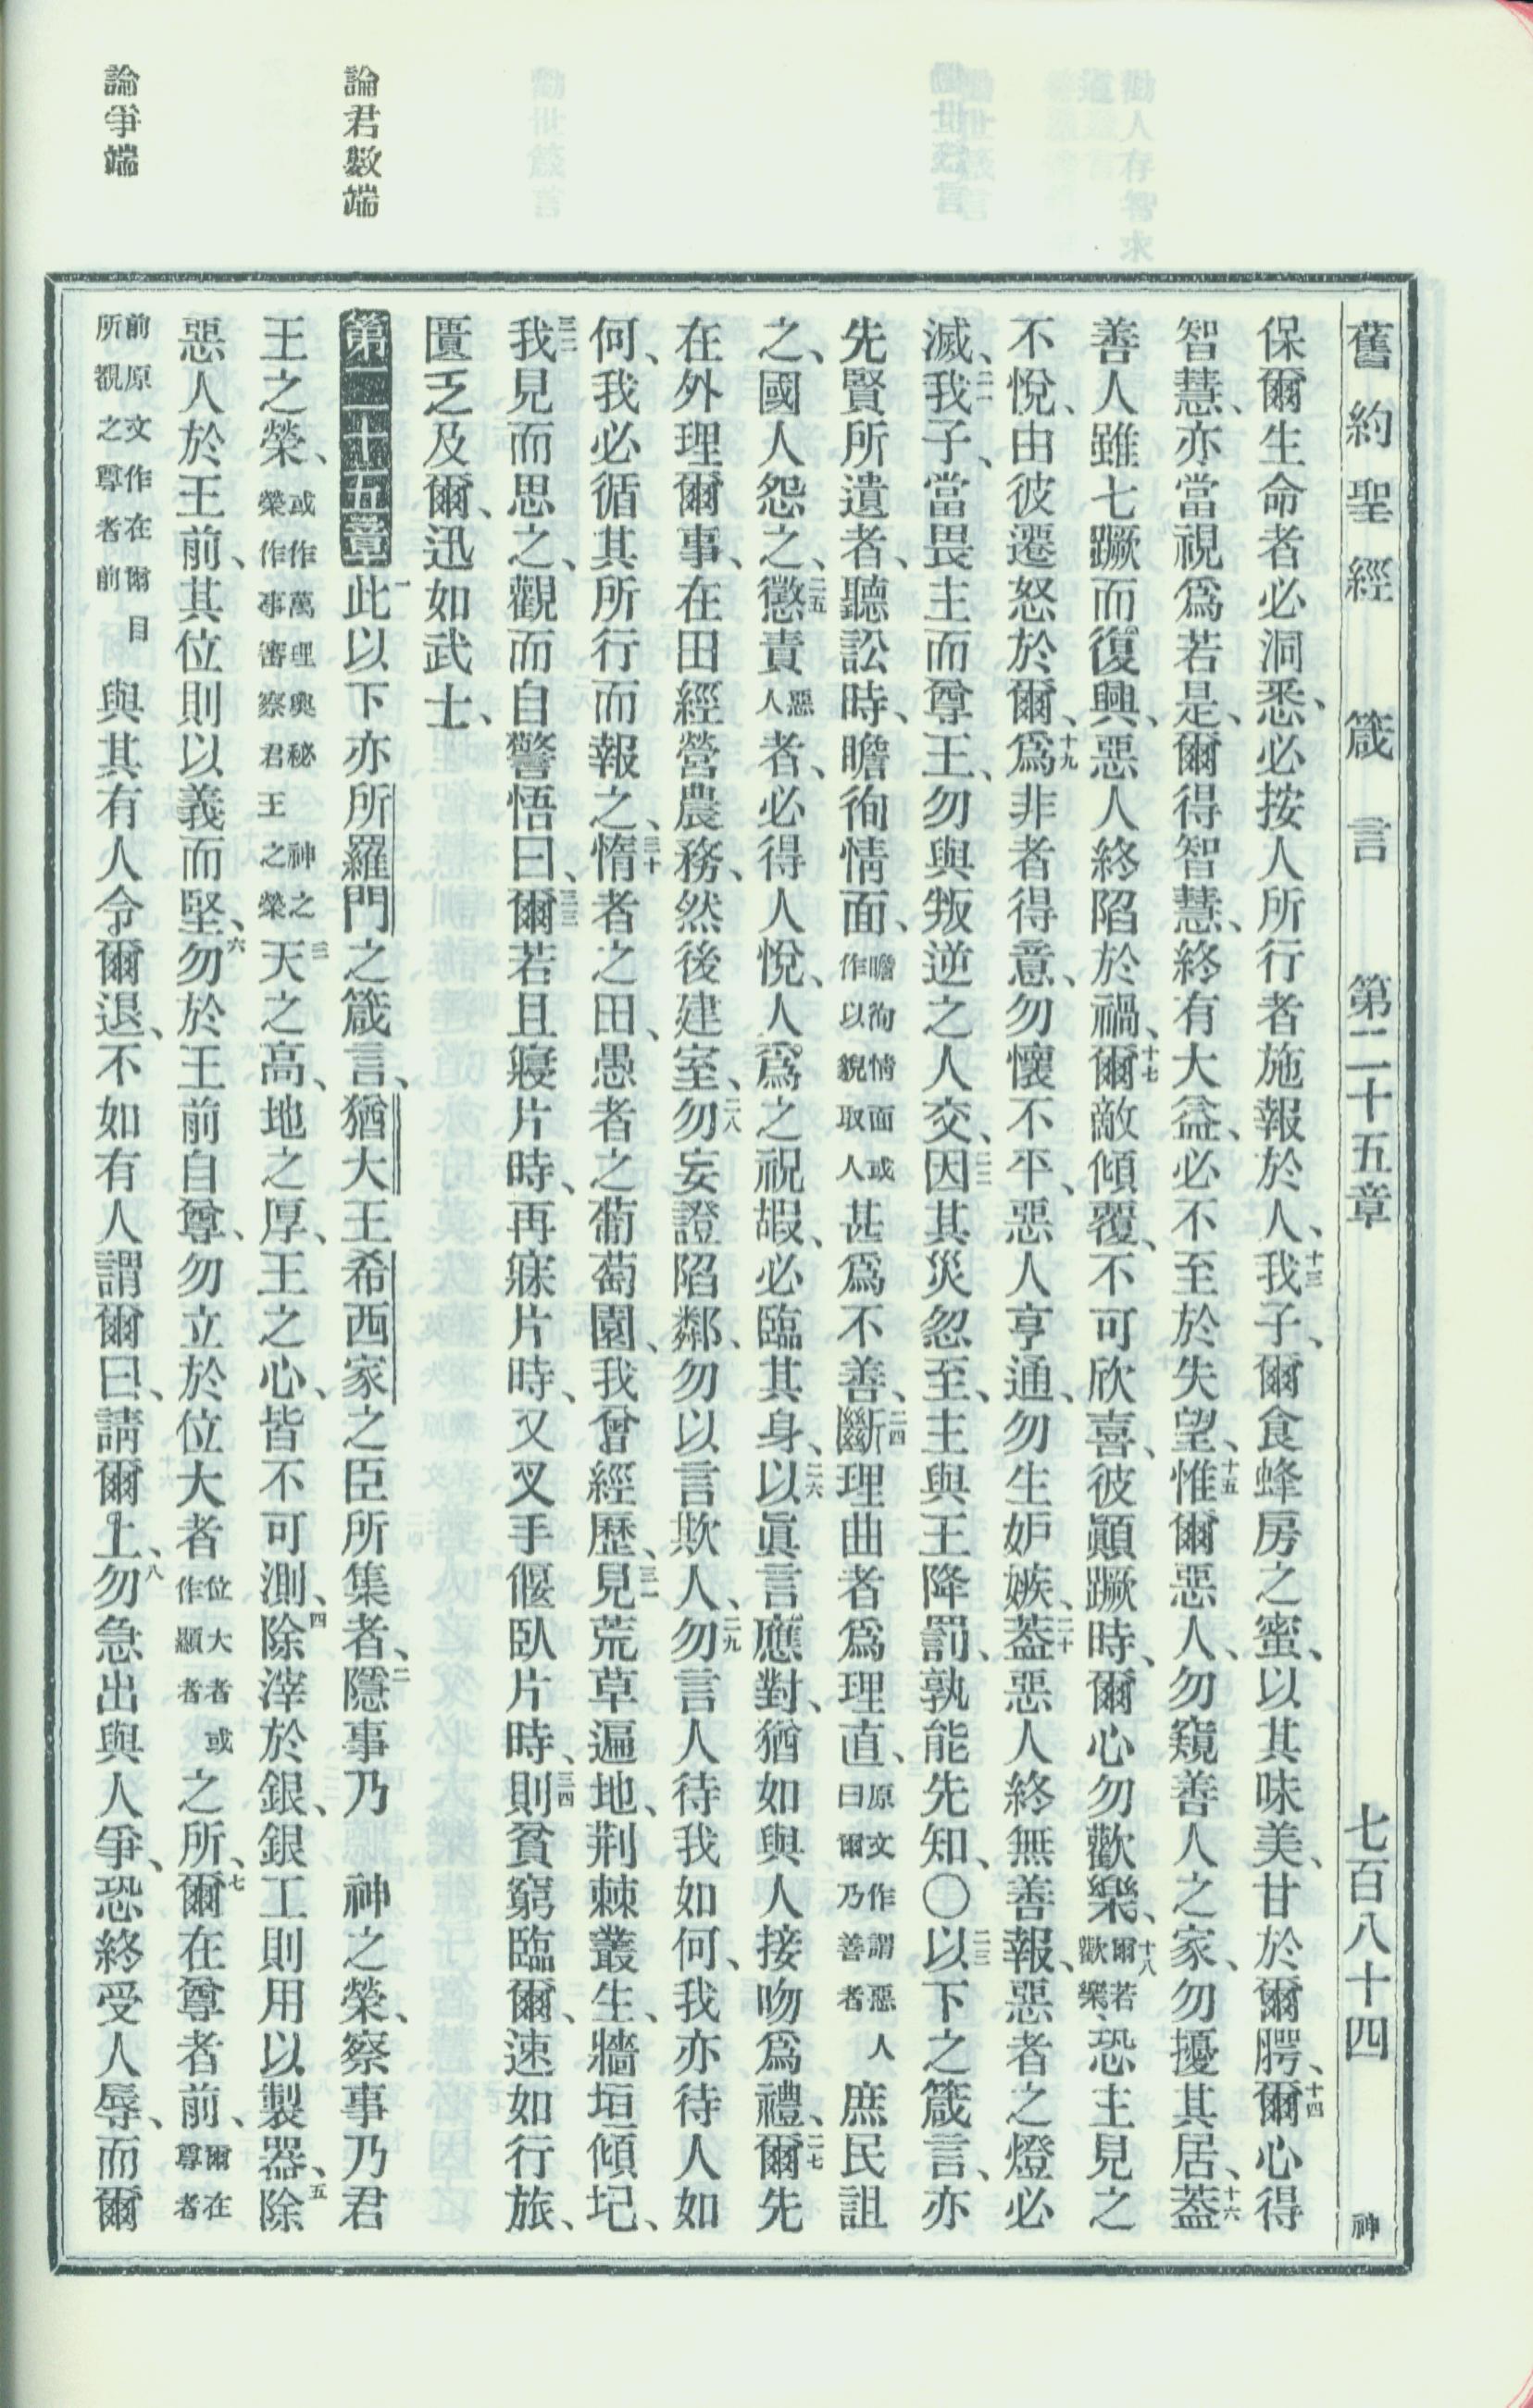 舊約聖經 箴言 第二十五章 七百八十四 神
保爾生命者必洞悉、必按人所行者施報於人、十三我子、爾食蜂房之蜜、以其味美、甘於爾腭、十四爾心得
智慧、亦當視爲若是、爾得智慧、終有大益、必不至於失望、十五惟爾惡人、勿窺善人之家、勿擾其居、十六蓋
善人雖七蹶而復興、惡人終陷於禍、十七爾敵傾覆、不可欣喜、彼顚蹶時、爾心勿歡樂、十八爾若歡樂、恐主見之
不悅、由彼遷怒於爾、十九爲非者得意、勿懷不平、惡人亨通、勿生妒嫉、二十蓋惡人終無善報、惡者之燈必
滅、二一我子、當畏主而尊王、勿與叛逆之人交、二二因其災忽至、主與王降罰、孰能先知、〇二三以下之箴言、亦
先賢所遺者、聽訟時、瞻徇情面、瞻徇情面或作以貌取人甚爲不善、二四斷理曲者爲理直、原文作謂惡人曰爾乃善者庶民詛
之、國人怨之、二五懲責惡人者、必得人悅、人爲之祝嘏、必臨其身、二六以眞言應對、猶如與人接吻爲禮、二七爾先
在外理爾事、在田經營農務、然後建室、二八勿妄證陷鄰、勿以言欺人、二九勿言人待我如何、我亦待人如
何、我必循其所行而報之、三十惰者之田、愚者之葡萄園、我曾經歷、三一見荒草遍地、荆棘叢生、牆垣傾圮、
三二我見而思之、觀而自警悟曰、三三爾若且寢片時、再寐片時、又叉手偃臥片時、三四則貧窮臨爾、速如行旅、
匱乏及爾、迅如武士、
論君數端
第二十五章一此以下亦所羅門之箴言、猶大王希西家之臣所集者、二隱事乃 神之榮、察事乃君
王之榮、或作萬理奧秘神之榮作事審察君王之榮三天之高、地之厚、王之心、皆不可測、四除滓於銀、銀工則用以製器、五除
惡人於王前、其位則以義而堅、六勿於王前自尊、勿立於位大者位大者或作顯者之所、七爾在尊者前、爾在尊者
論爭端
前原文作在爾目所觀之尊者前與其有人令爾退、不如有人謂爾曰、請爾上、八勿急出與人爭、恐終受人辱、而爾